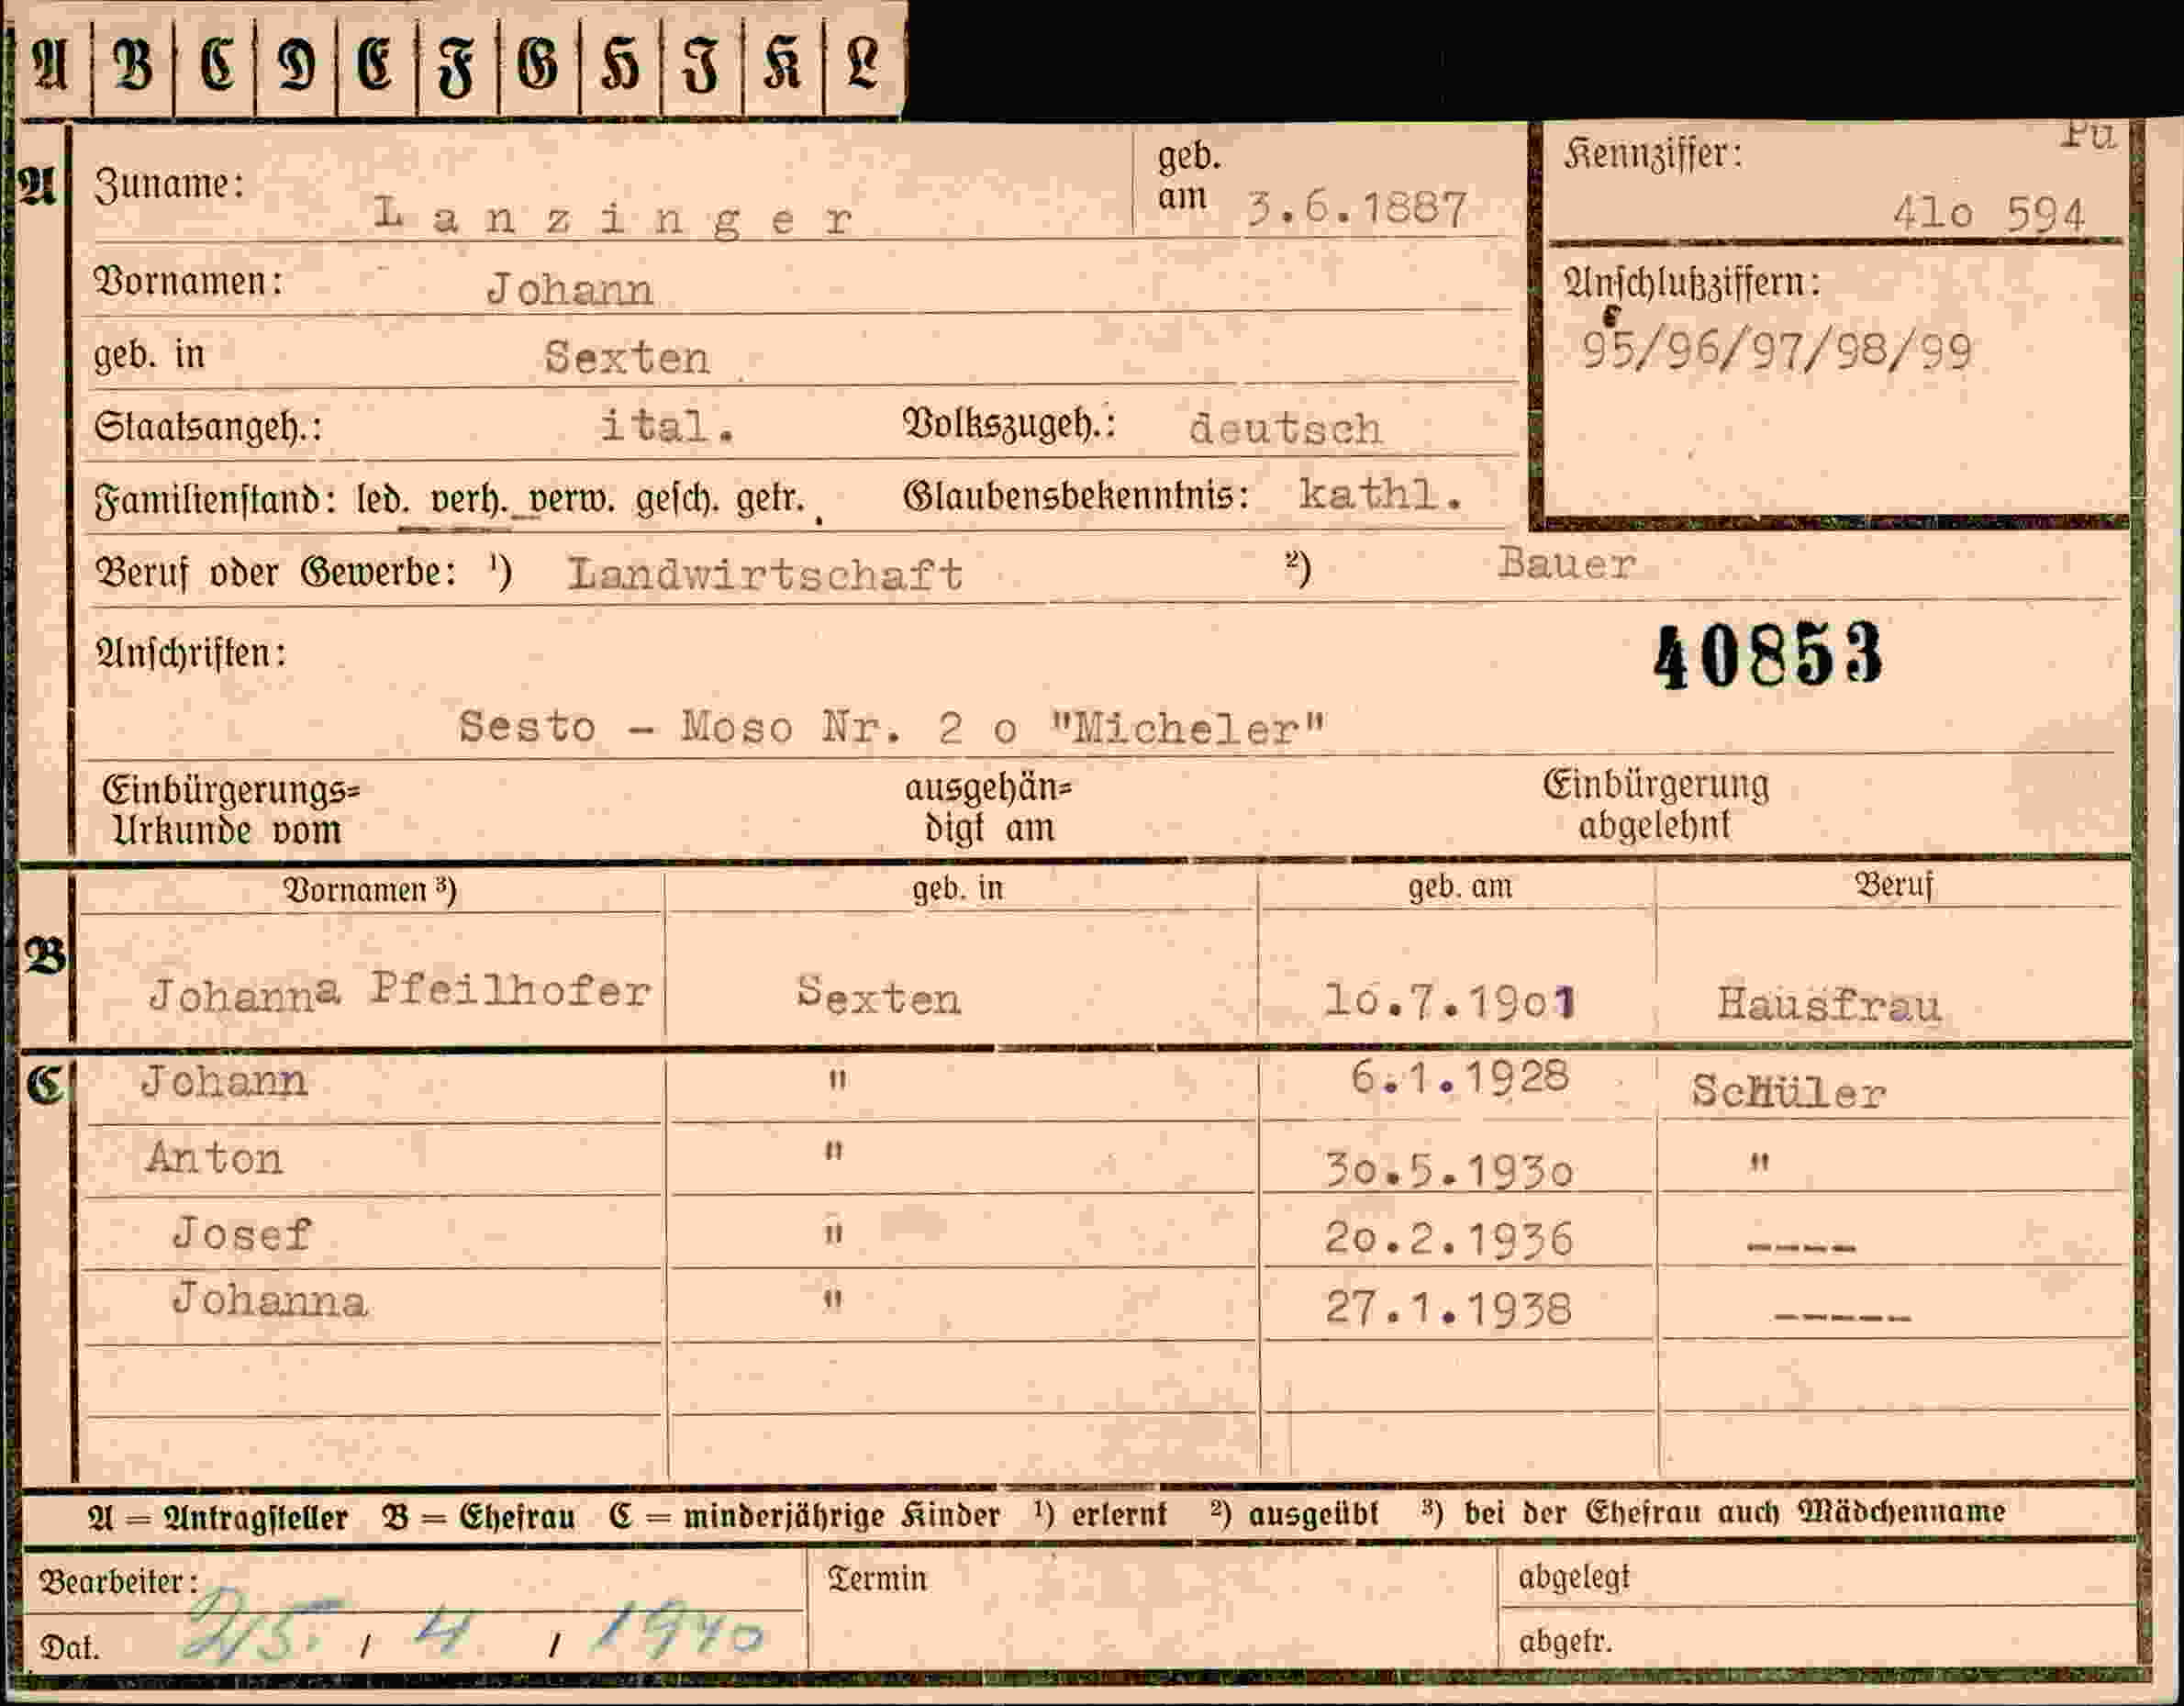 A B C D E F G H I K L
Pu
A Zuname: Lanzinger geb. am 3.6.1887 Kennziffer: 41o 594
Vornamen: Johann Anschlußziffern:
95/96/97/98/99
geb. in Sexten
Staatsangeh.: ital. Volkszugeh.: deutsch
Familienstand: led. verh. verw. gesch. getr. Glaubensbekenntnis: kathl.
Beruf oder Gewerbe: ¹) Landwirtschaft ²) Bauer
Anschriften: 40853
Sesto - Moso Nr. 2 o "Micheler"
Einbürgerungs= ausgehän= Einbürgerung
Urkunde vom digt am abgelehnt
Vornamen ³) geb. in geb. am Beruf
B Johanna Pfeilhofer Sexten 1o.7.19o1 Hausfrau
C Johann " 6.1.1928 Schüler
Anton " 3o.5.193o "
Josef " 2o.2.1936 ----
Johanna " 27.1.1938 -----
A = Antragsteller B = Ehefrau C = minderjährige Kinder ¹) erlernt ²) ausgeübt ³) bei der Ehefrau auch Mädchenname
Bearbeiter: Termin abgelegt
Dat. 25. / 4 / 1940 abgetr.